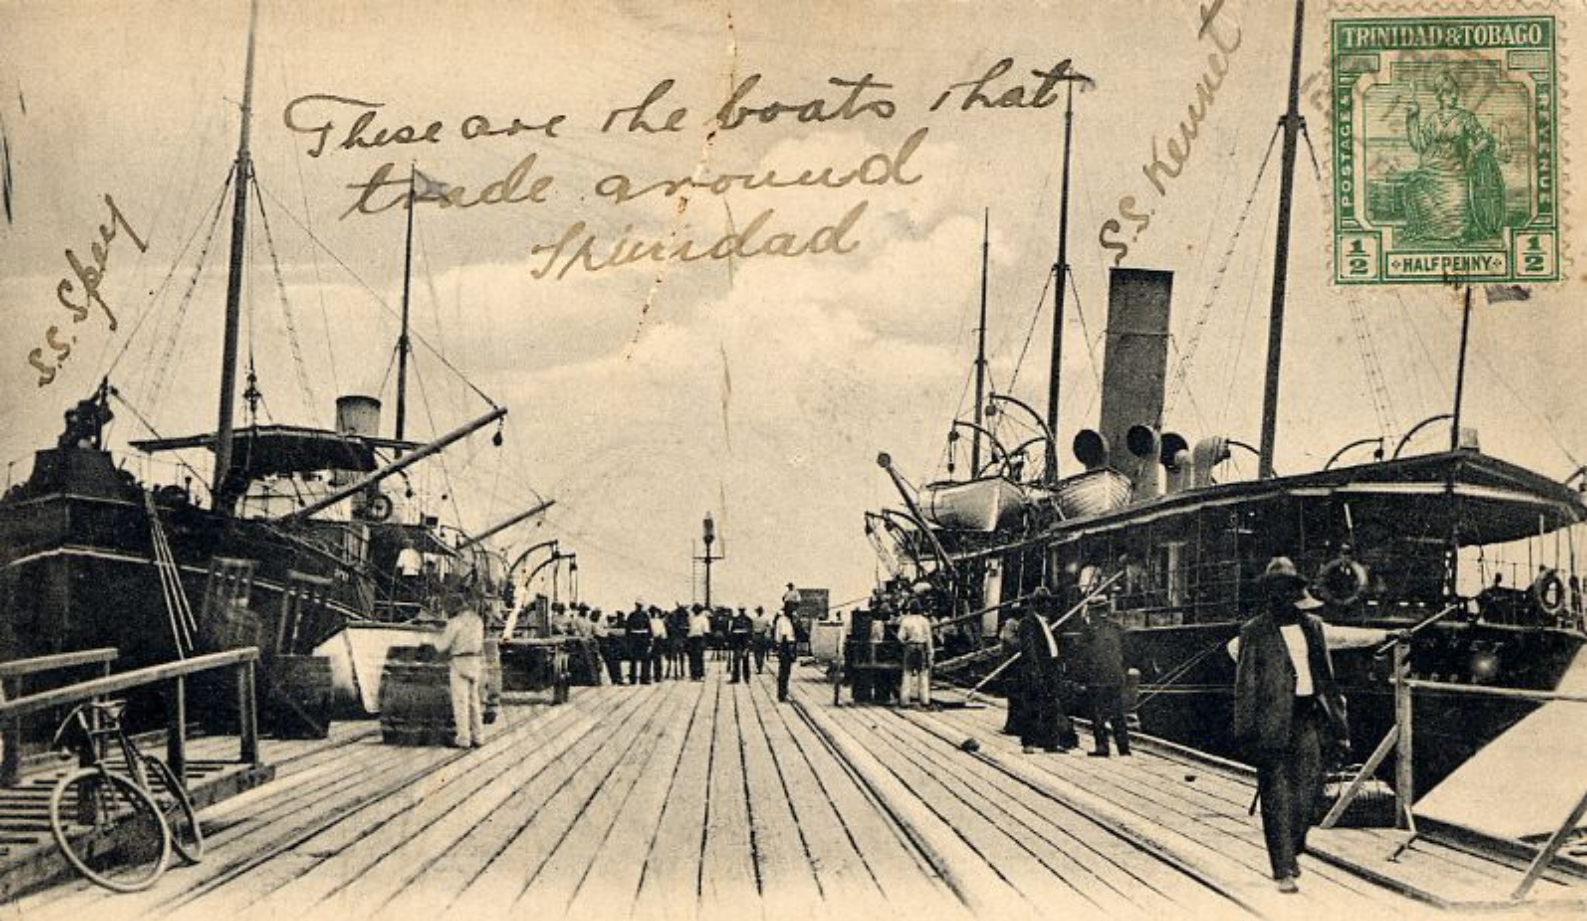 These are the boats that
trade around
Trinidad
S.S. Spey
S.S. Kennet
TRINIDAD & TOBAGO
POSTAGE &
REVENUE
1/2
HALFPENNY
1/2